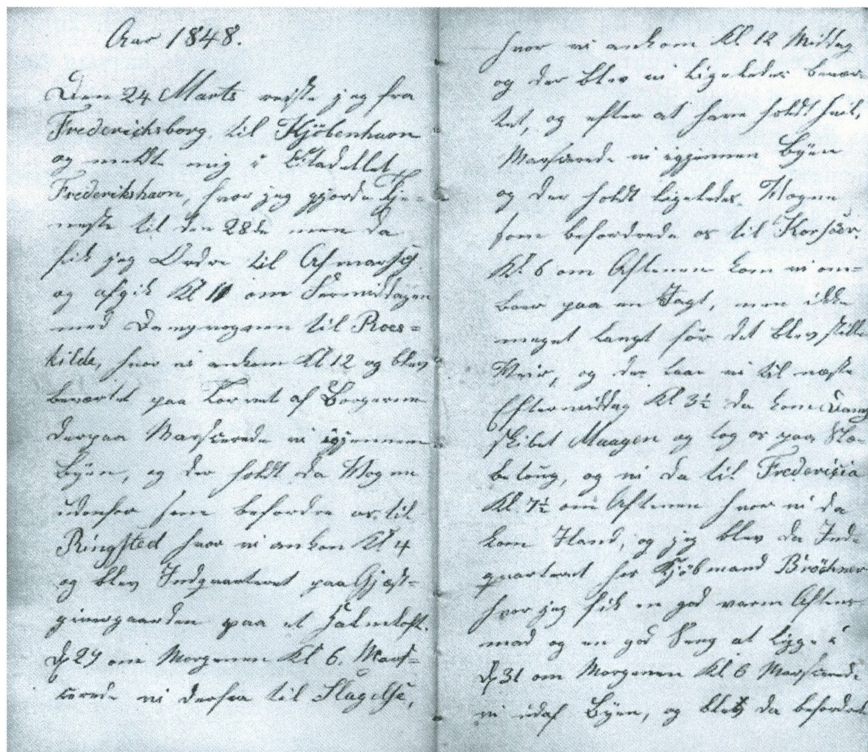 Aar 1848.
Den 24 Marts reiste jeg fra
Frederichsborg, til Kjöbenhavn
og meldte mig i Citadellet
Frederikshavn, hvor jeg gjorde Tje=
neste til den 28de men da
fik jeg Ordre til Afmarsch
og afgik Kl 11 om Formiddagen
med Dampvognen til Roes=
kilde, hvor vi ankom Kl 12 og blev
beværtet paa Torvet af Borgerne
derpaa Marscerede vi igjennem
Byen, og der holdt da Vogne
udenfor som befordre os til
Ringsted hvor vi ankom Kl 4
og blev Indquarteret paa Gjæst=
givergaarden paa et Halmloft.
D 29 om Morgenen Kl 6. Mars=
cerede vi derfra til Slagelse,
hvor vi ankom Kl 12 Middag
og der blev vi ligeledes bevær
tet, og efter at have holdt hvil,
Marscerede vi igjennem Byen
og der holdt ligeledes Vogne
som befordrede os til Korsöer
Kl. 6 om Aftenen kom vi om=
bord paa en Jagt, men ikke
meget langt för det blev stille
Veir, og der laae vi til næste
Eftermiddag Kl 3½ da kom Damp
skibet Maagen og tog os paa Slæ
betoug, og vi da til Fredericia
Kl. 7½ om Aftenen hvor vi da
kom Iland, og jeg blev da Ind=
quarteret hos Kjöbmand Bröchner
hvor jeg fik en god varm Aftens
mad og en god Seng at ligge i
D 31 om Morgenen Kl 6 Marscerede
vi udaf Byen, og blev da befordret